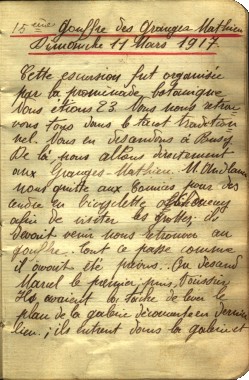 15ème gouffre des Granges-Mathieu
Dimanche 11 Mars 1917.
Cette escursion fut organisée
par la promenade botanique
Nous étions 23. Nous nous retrou
vons tous dans le tacot tradition
nel. Nous en descendons à Busy.
De là nous allons directement
aux Granges-Mathieu. M.
nous quitte aux pour des
cendre en bicyclette
afin de visiter les grottes. il
devait venir nous retrouver au
gouffre. tout ce passe comme
il avait été prévu.. On descend
Marcel le premier, puis
Ils avaient la tache de lever le
plan de la galerie découverte en dernier
lieu. ; ils entrent dans la galerie et